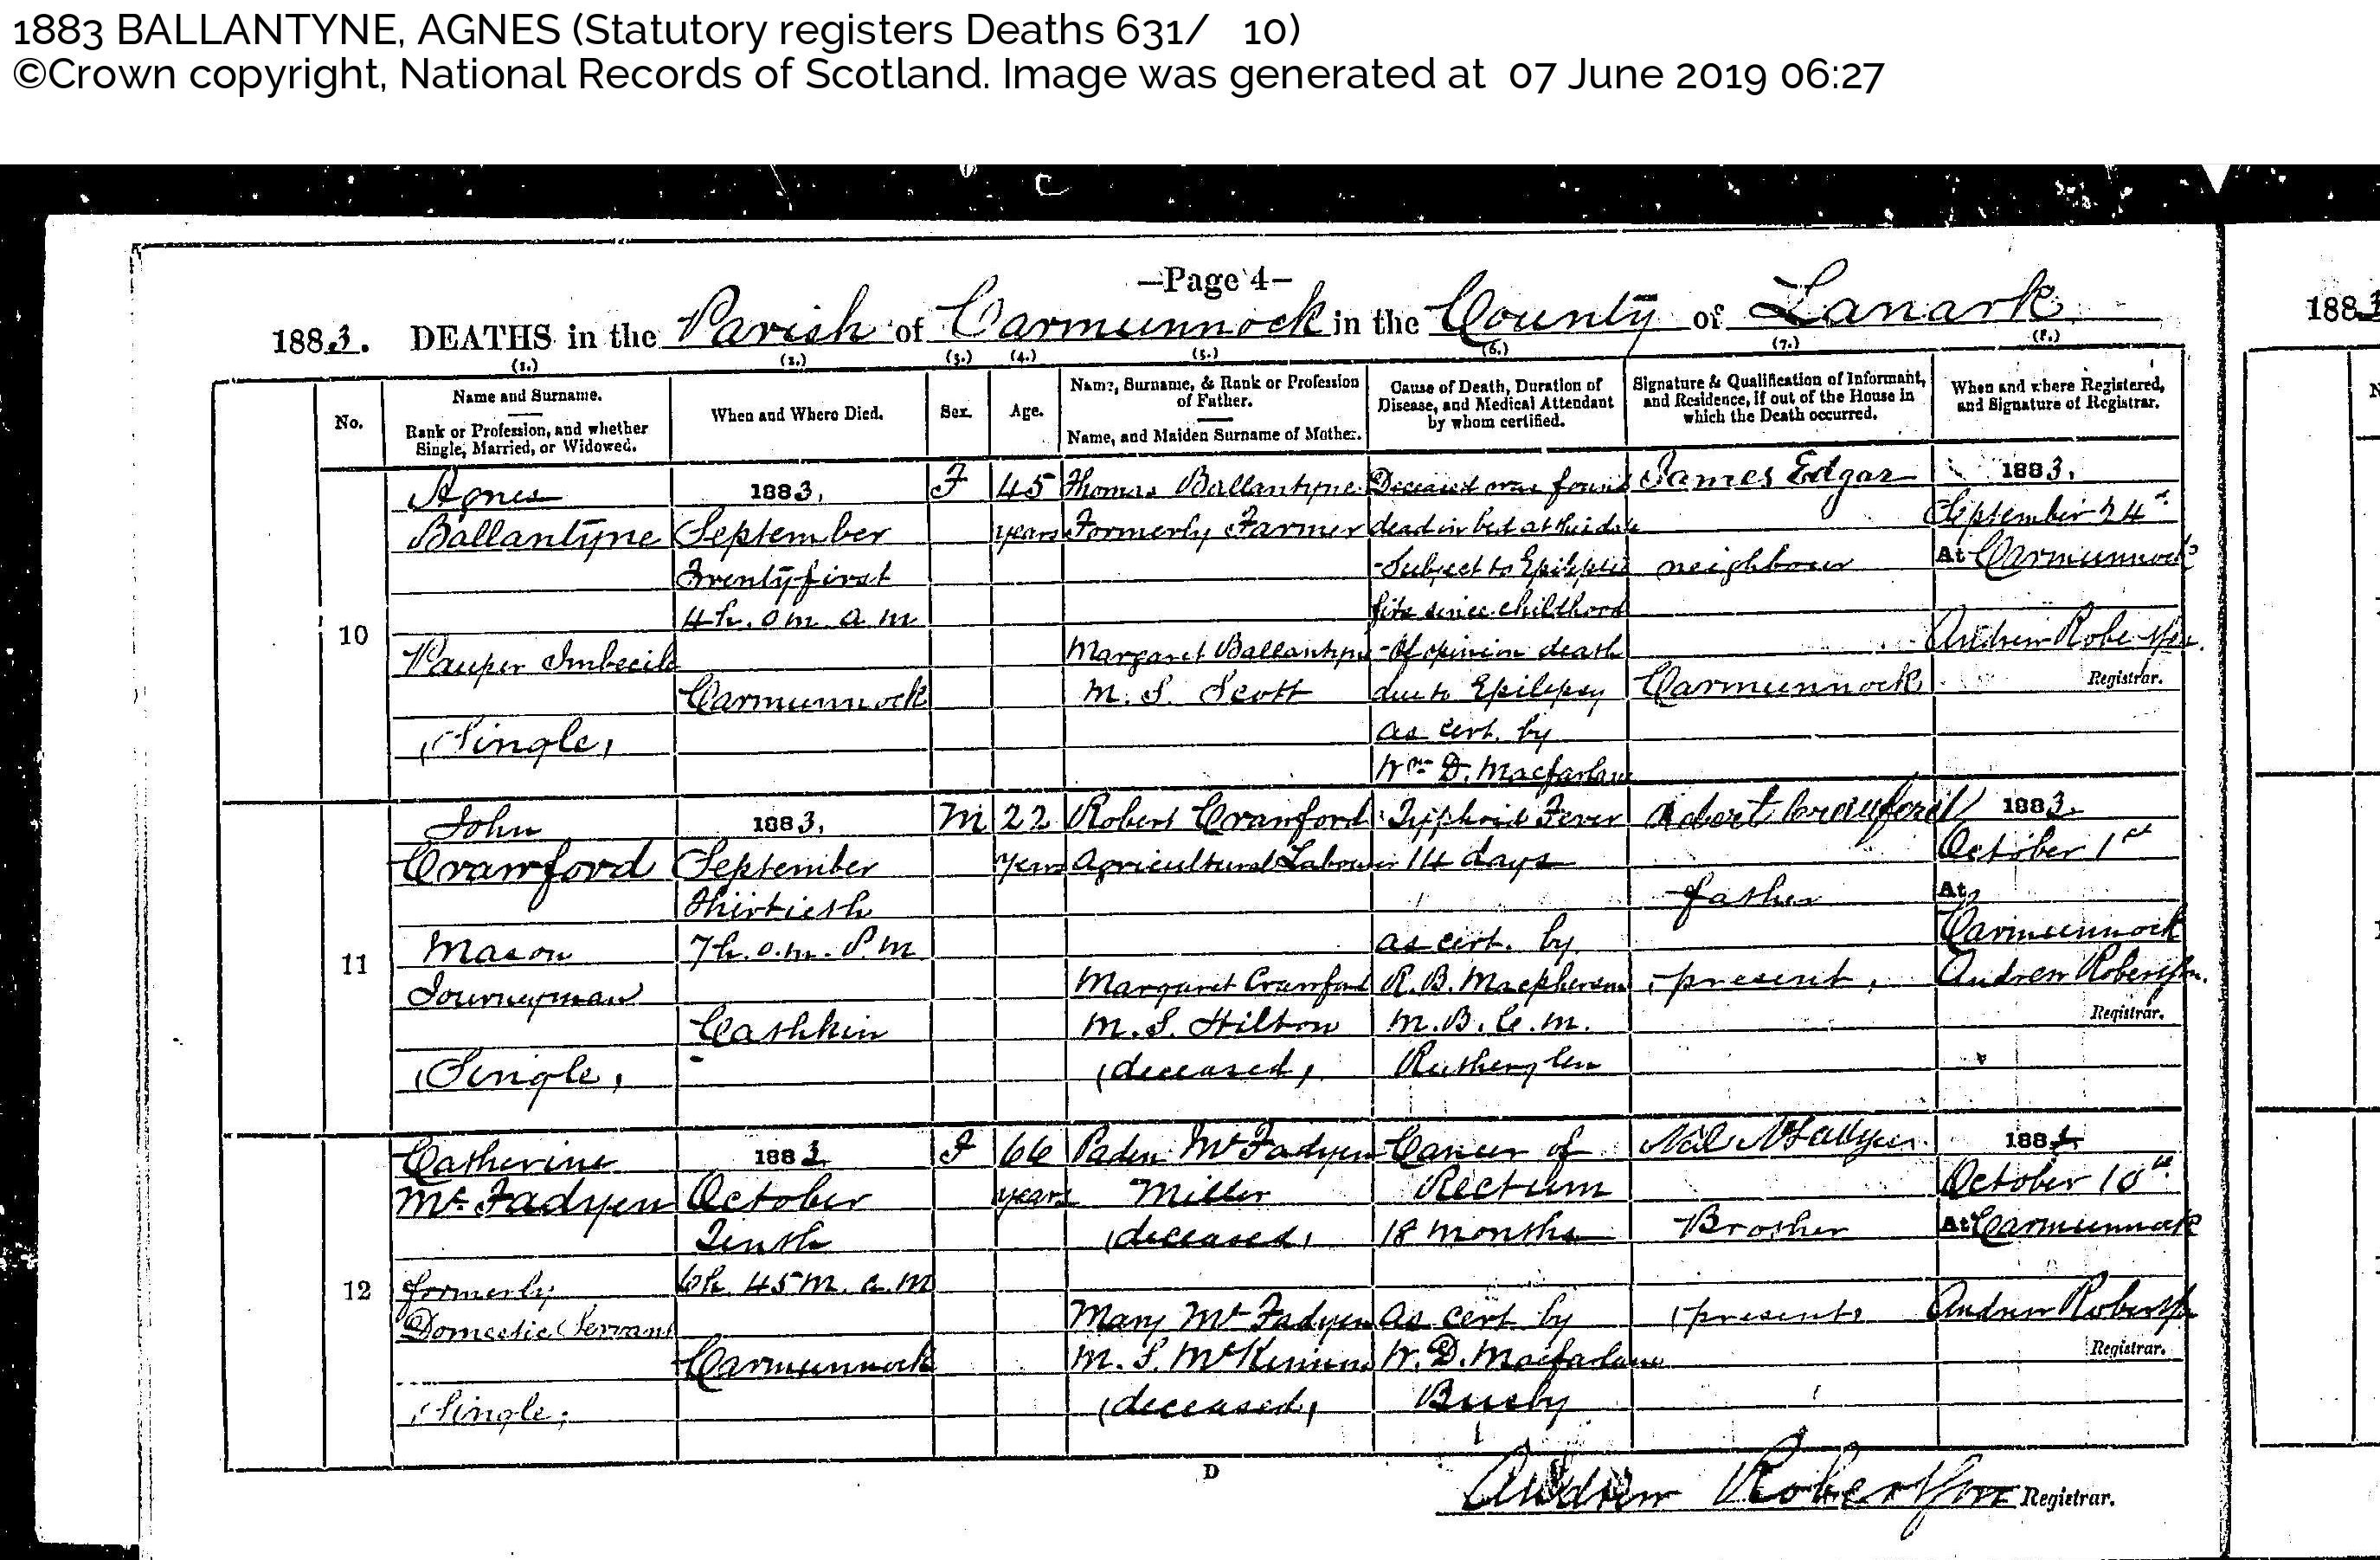 1883 BALLANTYNE, AGNES (Statutory registers Deaths 631/ 10)
©Crown copyright, National Records of Scotland. Image was generated at 07 June 2019 06:27
—Page 4—
1883. DEATHS in the Parish of Carmunnock in the County of Lanark
188
(1.) (2.) (3.) (4.) (5.) (6.) (7.) (8.)
No.
Name and Surname.
Rank or Profession, and whether
Single, Married, or Widowed.
When and Where Died.
Sex.
Age.
Name, Surname, & Rank or Profession
of Father.
Name, and Maiden Surname of Mother.
Cause of Death, Duration of
Disease, and Medical Attendant
by whom certified.
Signature & Qualification of Informant,
and Residence, if out of the House in
which the Death occurred.
When and where Registered,
and Signature of Registrar.
10
Agnes
Ballantyne
Pauper Imbecile
(Single)
1883.
September
Twenty first
4 h. 0 m. a. m
Carmunnock
F
45
years
Thomas Ballantyne
Formerly Farmer
Margaret Ballantyne
M. S. Scott
Deceased was found
dead in bed at this date
-Subject to Epileptic
fits since childhood
-Of opinion death
due to Epilepsy
as cert. by
Wm D. Macfarlane
James Edgar
neighbour
Carmunnock
1883.
September 24th
At Carmunnock
Andrew Robertson.
Registrar.
11
John
Crawford
Mason
Journeyman
(Single)
1883.
September
Thirtieth
7 h. 0 m. P. M
Cathkin
M
22
years
Robert Crawford
Agricultural Labourer
Margaret Crawford
M. S. Hilton
(deceased)
Typhoid Fever
14 days
as cert. by
R. B. Macpherson
M. B. C. M.
Rutherglen
Robert Crawford
father
(present)
1883.
October 1st
At
Carmunnock
Andrew Robertson.
Registrar.
12
Catherine
McFadyen
formerly
Domestic Servant
(Single)
1883
October
Tenth
6 h. 45 m. a. m
Carmunnock
F
66
years
McFadyen
Miller
(deceased)
Mary McFadyen
M. S. McKinnon
(deceased)
Cancer of
Rectum
18 months
as cert by
W. D. Macfarlane
Busby
Neil McFadyen
Brother
(present)
188
October 10th
At Carmunnock
Andrew Robertson
Registrar.
D
Andrew Robertson Registrar.